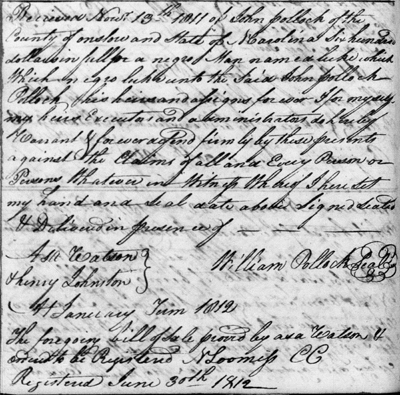 Received Novr 13th 1811 of John Pollock of the
County of onslow and State of N Carolina Six hundred
dollars in full for a negroe Man named Luke which
Which negroe Luke unto the Said John Pollock
Pollock his heirs and assigns forever I for my self
my heirs Executors and administrators do hereby
Warrant & forever defend firmly by these presents
against the Claims of all and Every Person or
Persons Whatever in Witness Whereof I have set
my hand and Seal date above Signed Sealed
& Delivered in presence of
Asa Watson
William Pollock Seal
& henry Johnston
January Term 1812
The foregoing bill of Sale proved by asa Watson &
ordered to be Registered N Loomiss CC
Registered June 30th 1812